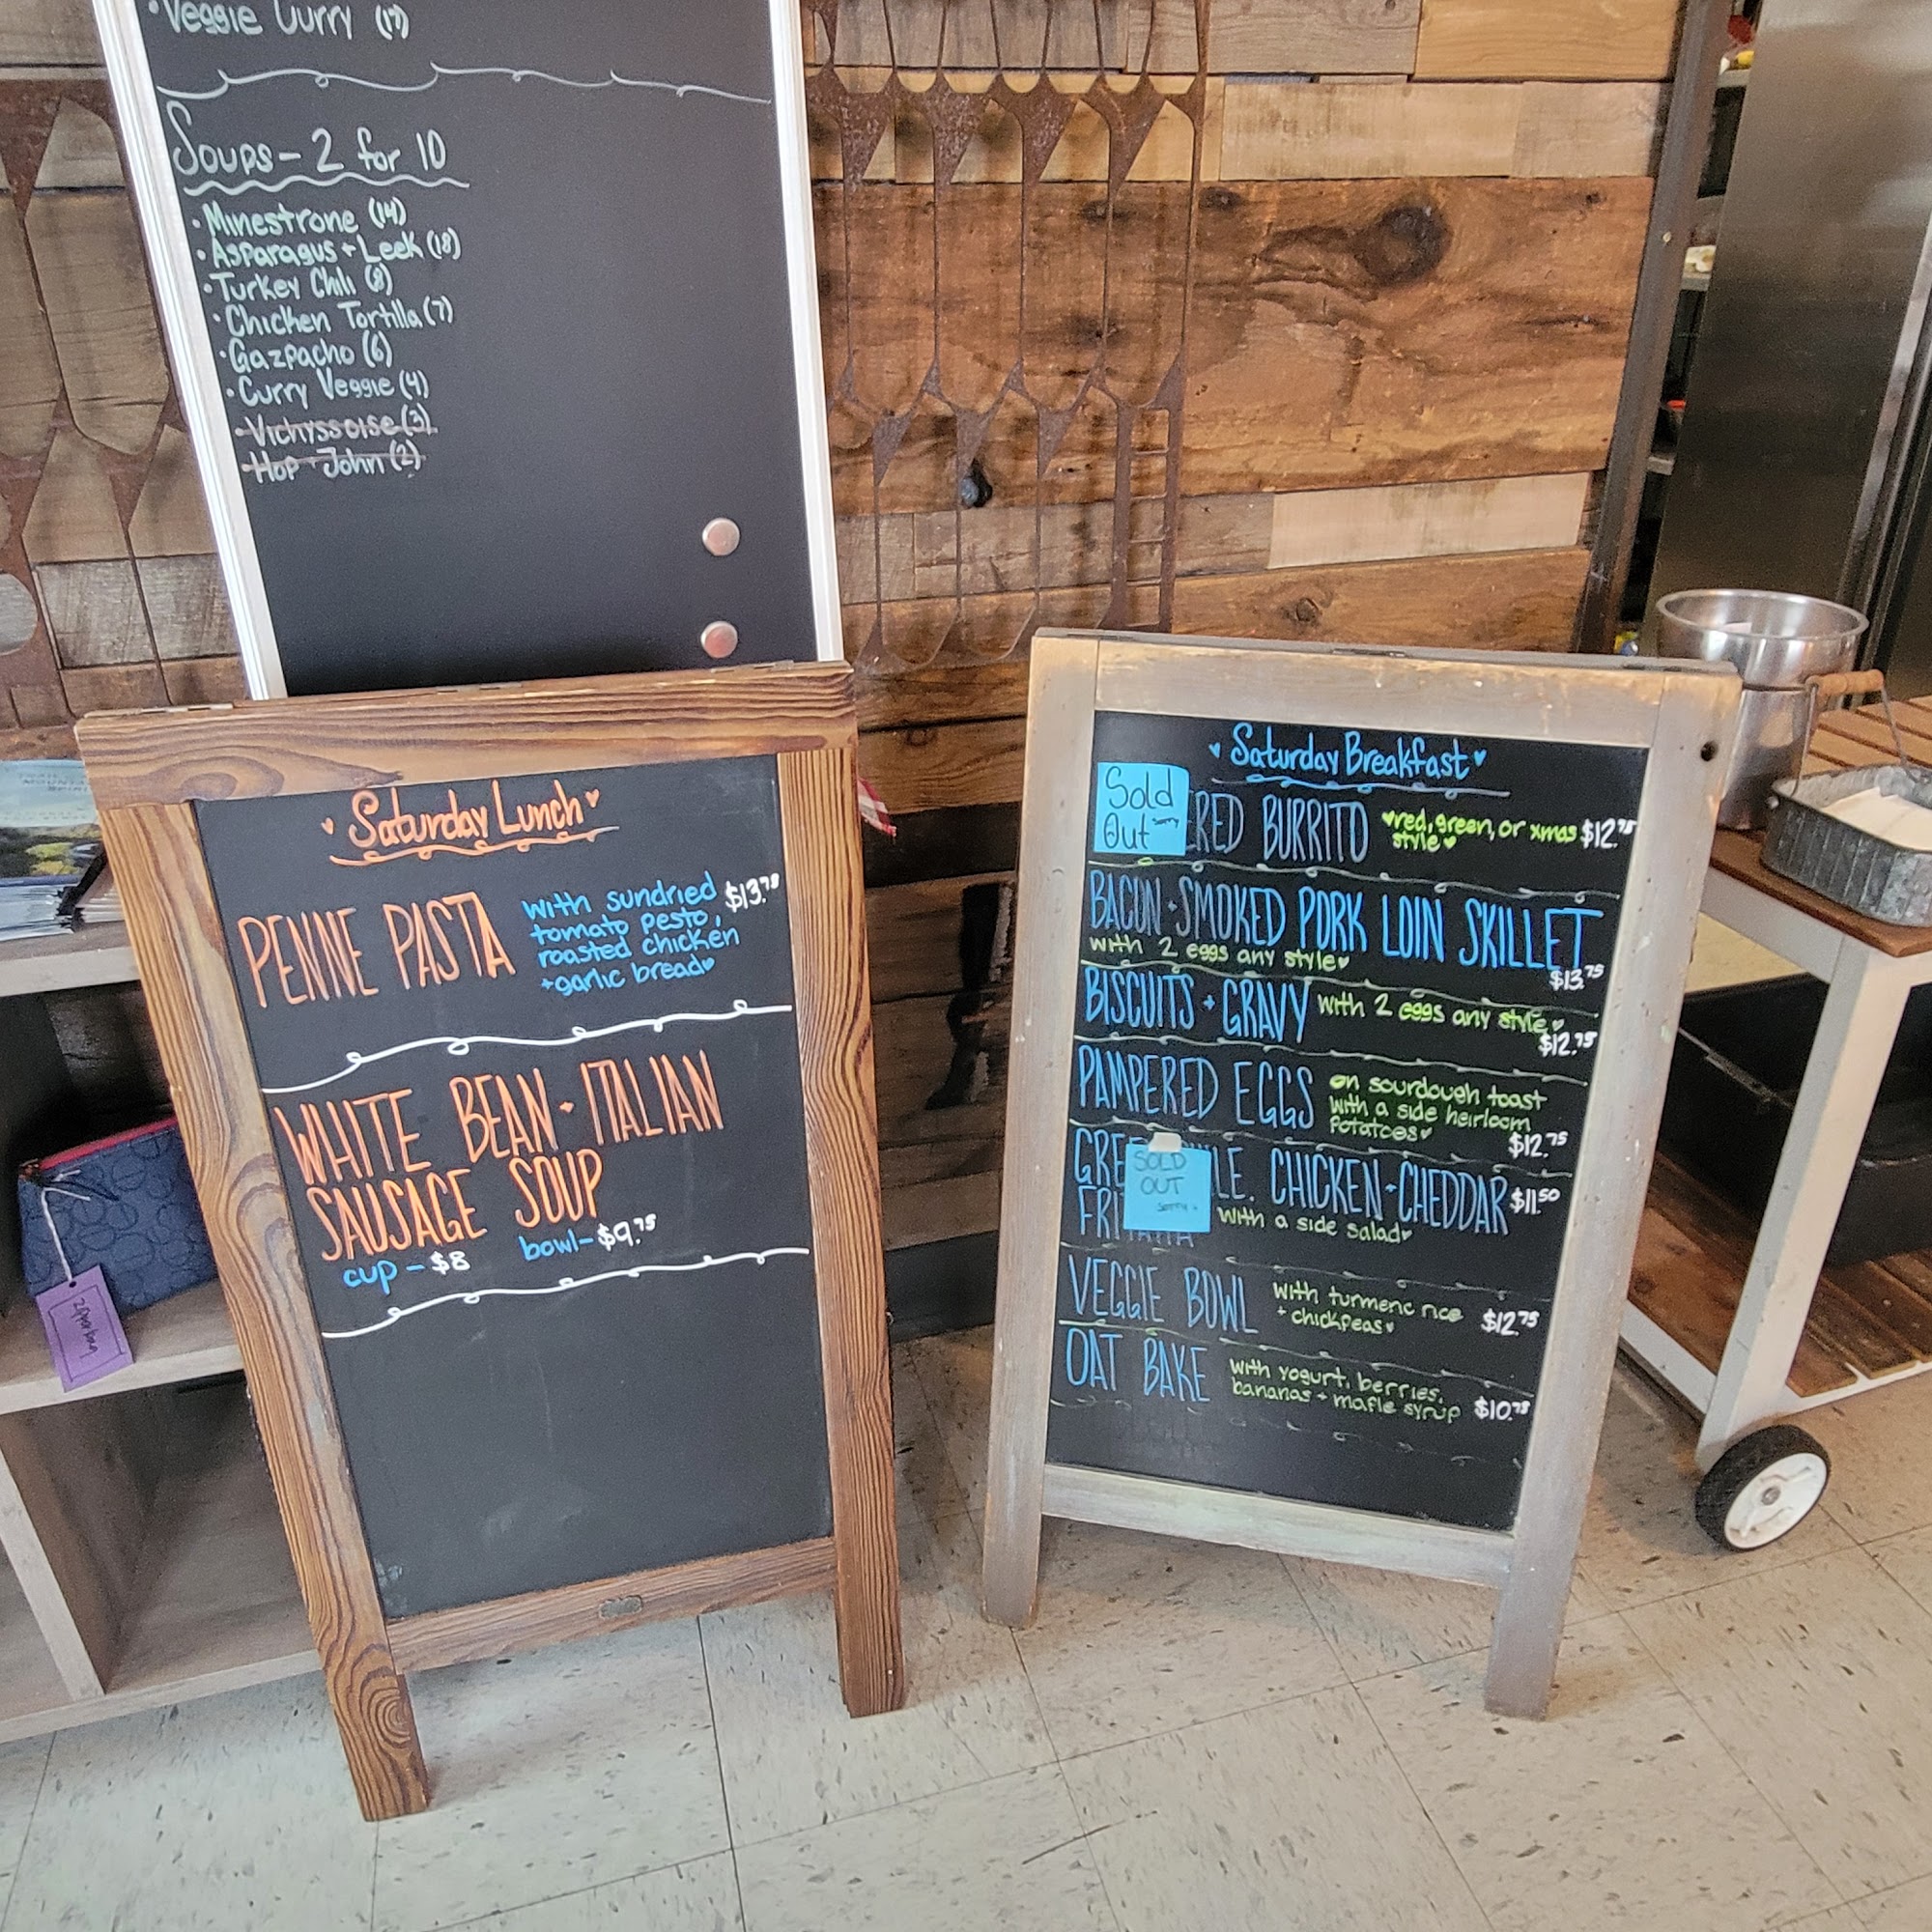 • Veggie Curry (17)
Soups - 2 for 10
• Minestrone (14)
• Asparagus + Leek (18)
• Turkey Chili (8)
• Chicken Tortilla (7)
• Gazpacho (6)
• Curry Veggie (4)
• Vichyssoise (3)
• Hop + John (2)
Saturday Lunch
PENNE PASTA
with sundried
tomato pesto,
roasted chicken
+ garlic bread
$13.75
WHITE BEAN + ITALIAN
SAUSAGE SOUP
cup - $8 bowl - $9.75
Saturday Breakfast
Sold
Out
sorry
RED BURRITO
red, green, or xmas
style
$12.75
BACON + SMOKED PORK LOIN SKILLET
with 2 eggs any style
$13.75
BISCUITS + GRAVY with 2 eggs any style
$12.75
PAMPERED EGGS
on sourdough toast
with a side heirloom
potatoes
$12.75
GRE LE, CHICKEN + CHEDDAR $11.50
FRITTATA with a side salad
SOLD
OUT
sorry
VEGGIE BOWL
with turmeric rice
+ chickpeas
$12.75
OAT BAKE
with yogurt, berries,
bananas + maple syrup
$10.75
zipper bag